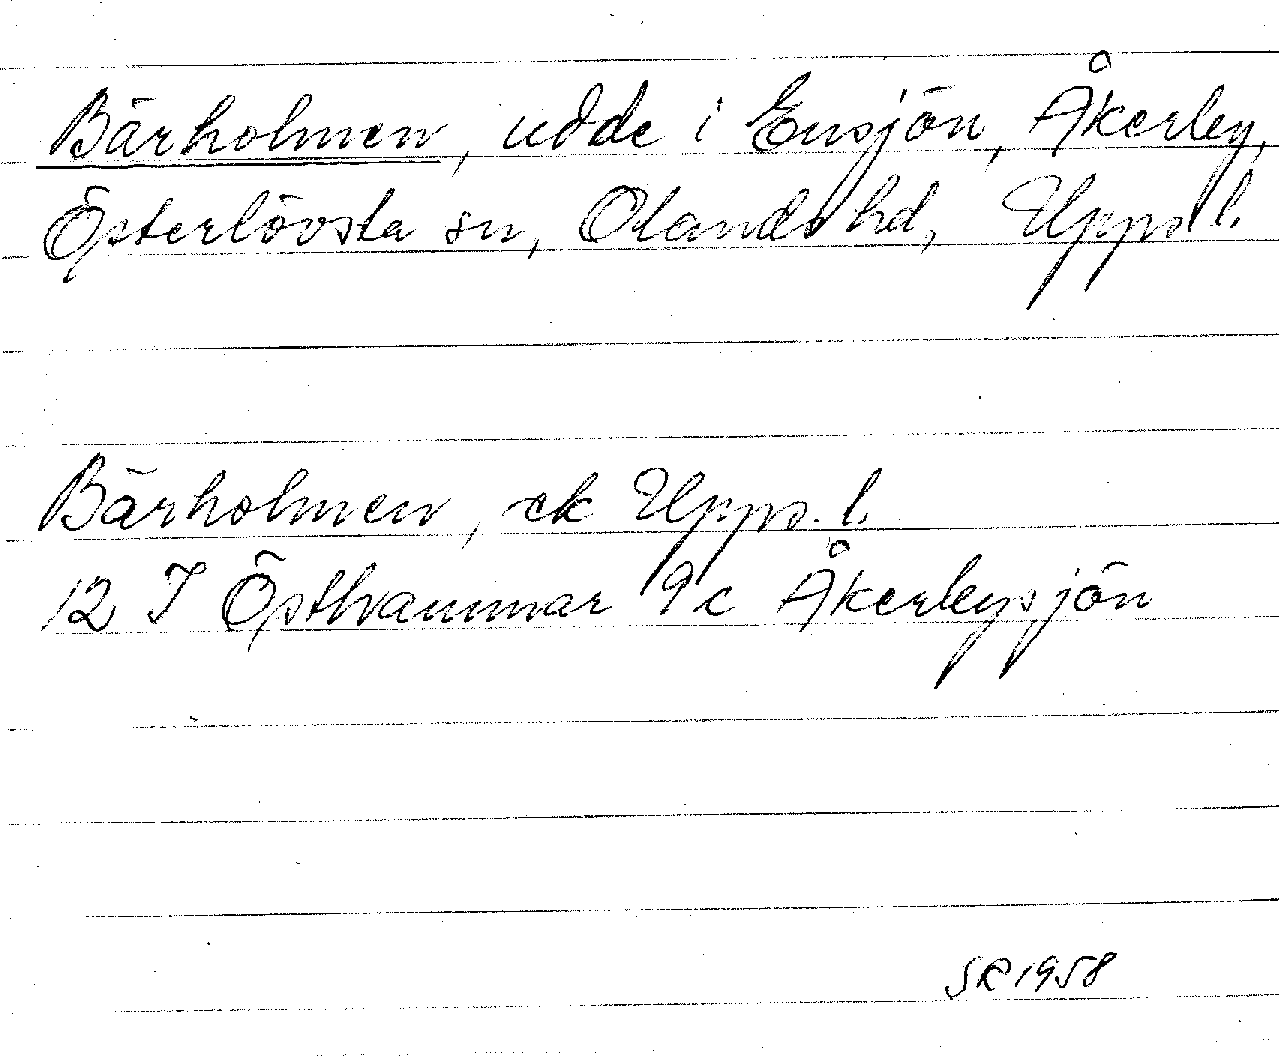 Bärholmen, udde i Ensjön, Åkerby,
Österlövsta sn, Olands hd, Uppsl.
Bärholmen, ek Upps. l.
12 I Östhammar 9c Åkerbysjön
SR 1958